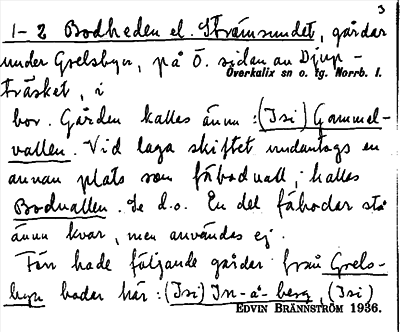 3
1-2 Bodheden el. Strömsundet, gårdar
under Grelsbyn, på Ö. sidan av Djup-
träsket, i
Överkalix sn o. tg. Norrb. l.
bor. Gården kalles ännu: (Isi) Gammel-
vallen. Vid laga skiftet undantogs en
annan plats som fäbodvall, kalles
Bodvallen. Se d.o. En del fäbodar stå
ännu kvar, men användes ej.
Förr hade följande gårdar från Grels-
byn bodar här: (Isi) In-å-berg, (Isi)
EDVIN BRÄNNSTRÖM 1936.